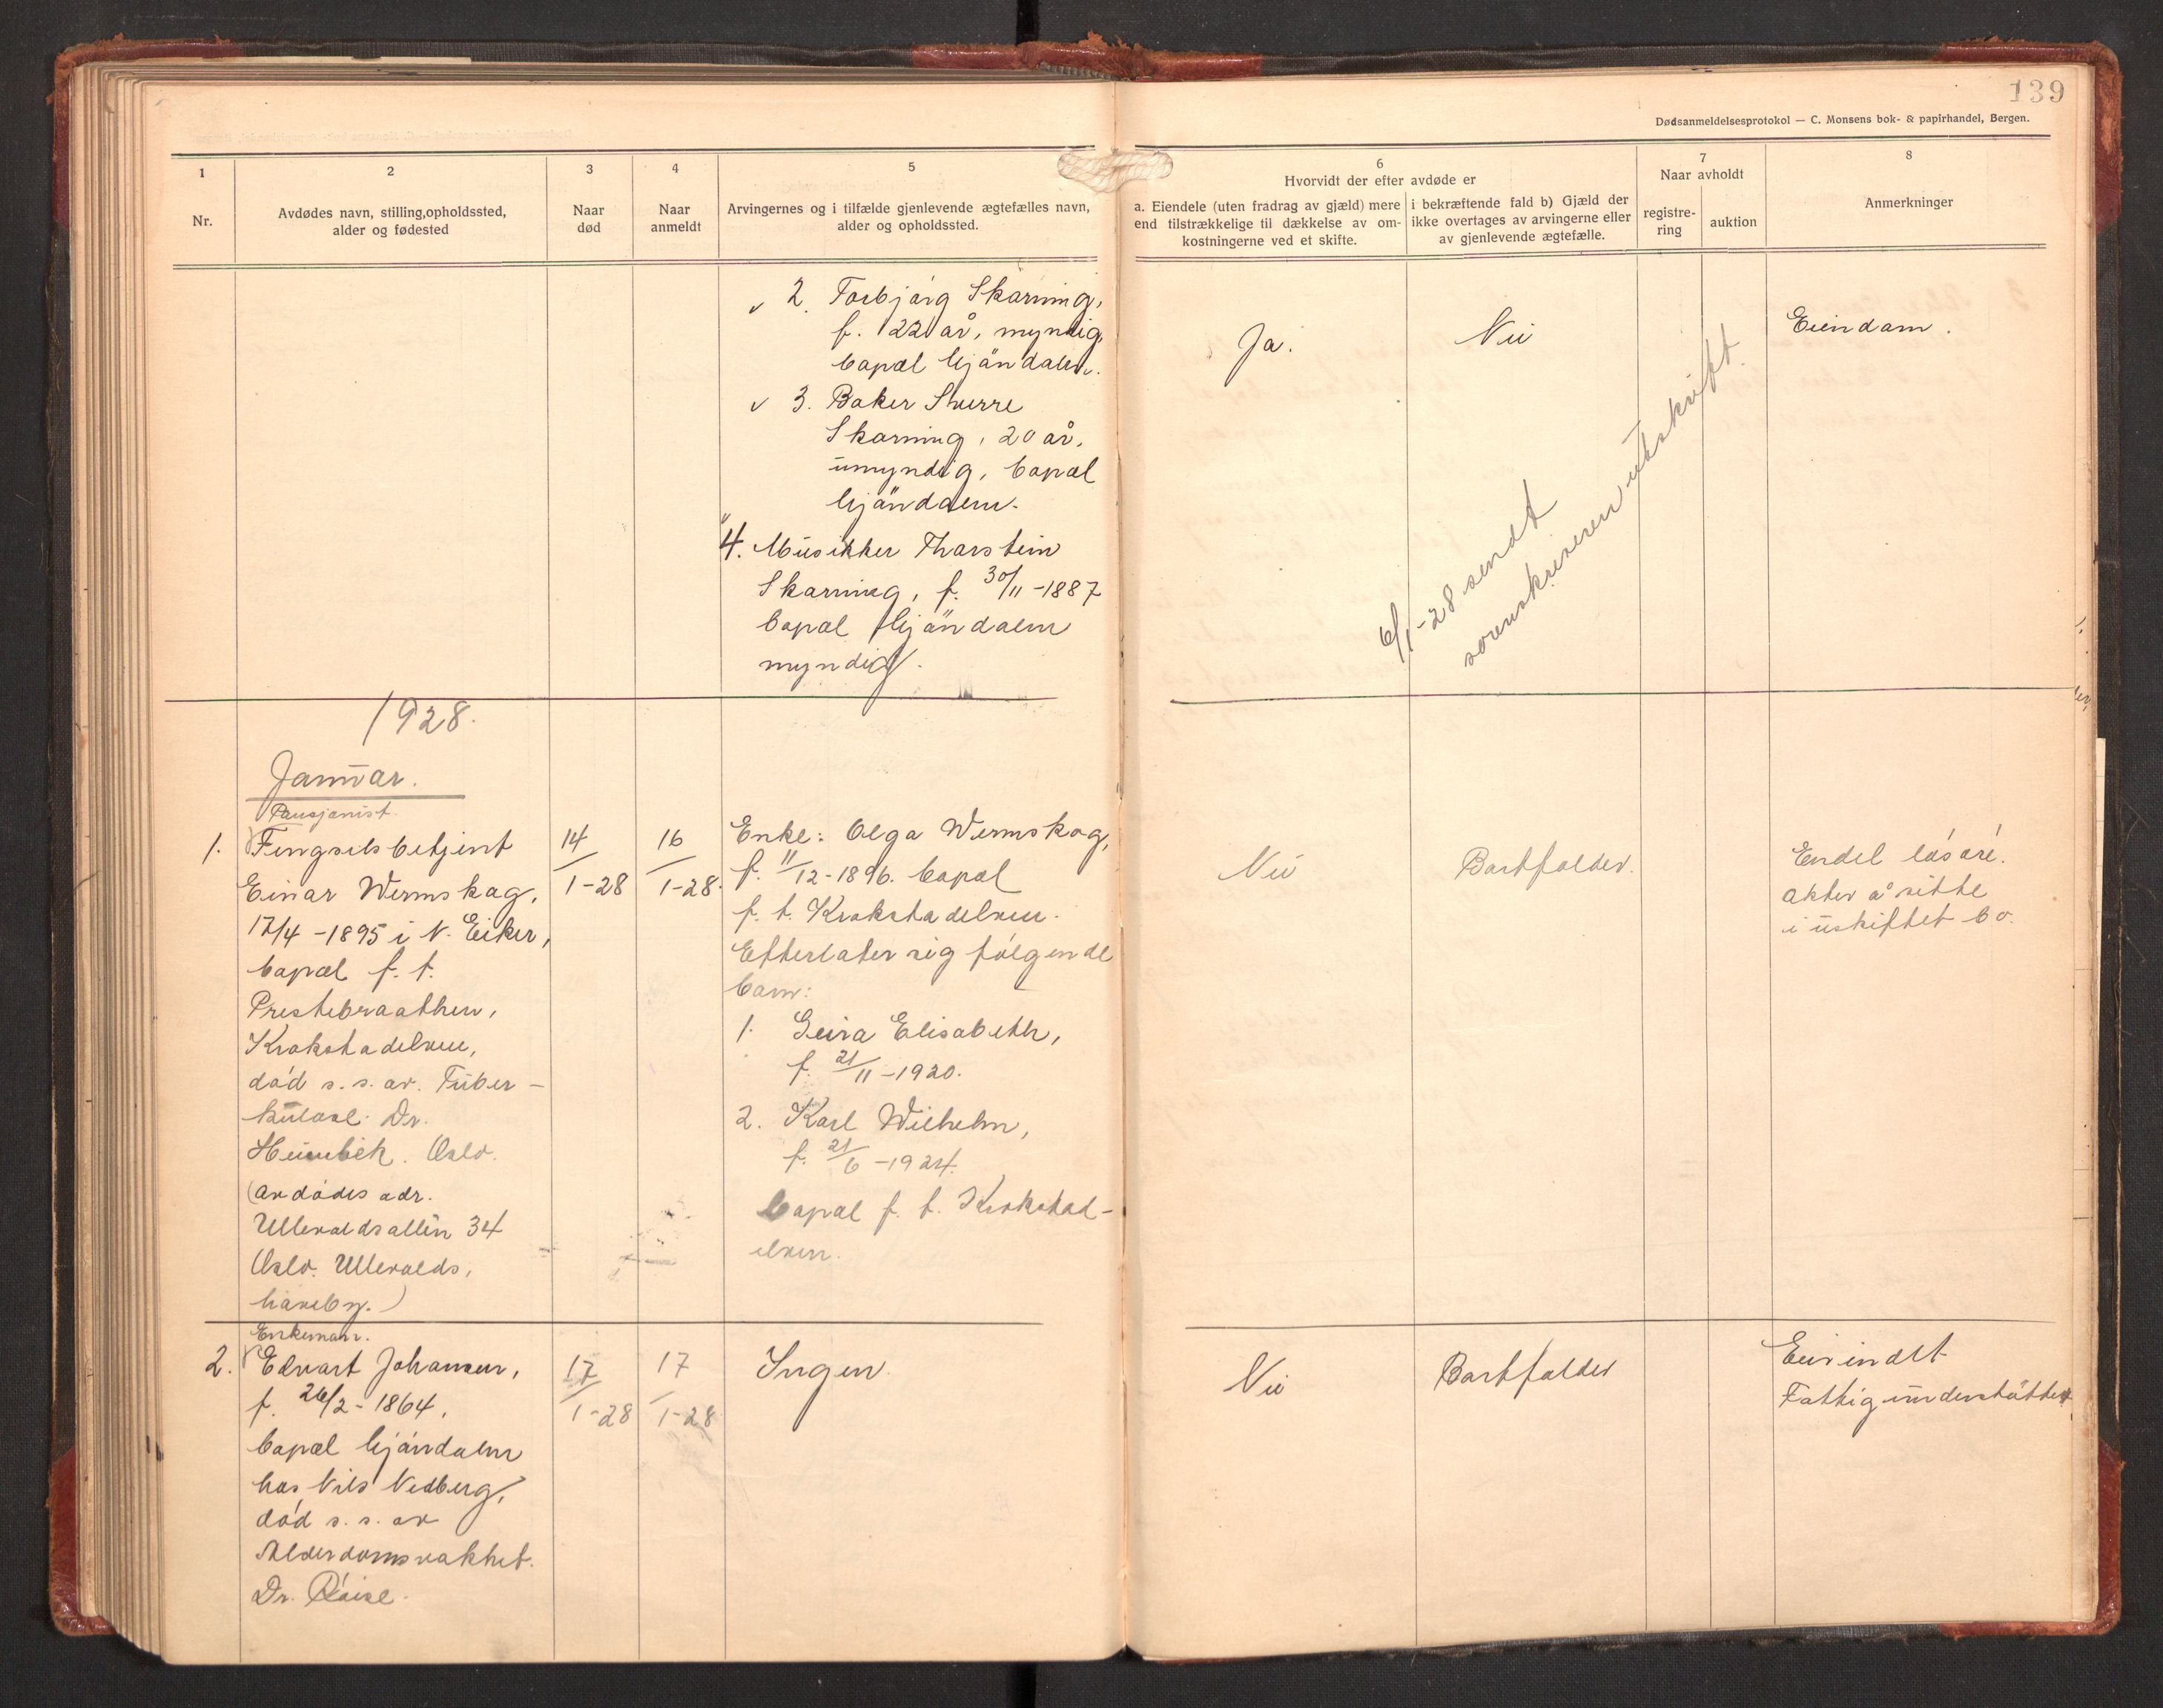 139
Dødsanmeldelsesprotokol — C. Monsens bok- & papirhandel, Bergen.
1
Nr.
2
Avdødes navn, stilling, opholdssted,
alder og fødested
3
Naar
død
4
Naar
anmeldt
5
Arvingernes og i tilfælde gjenlevende ægtefælles navn,
alder og opholdssted.
6
Hvorvidt der efter avdøde er
a. Eiendele (uten fradrag av gjæld) mere
end tilstrækkelige til dækkelse av om-
kostningerne ved et skifte.
i bekræftende fald b) Gjæld der
ikke overtages av arvingerne eller
av gjenlevende ægtefælle.
7
Naar avholdt
registre-
ring
auktion
8
Anmerkninger
2. Torbjørg Skarning,
f. 22 år, myndig,
bopæl Mjøndalen.
3. Baker Sverre
Skarning, 20 år,
umyndig, bopæl
Mjøndalen.
4. Musikker Thorstein
Skarning, f. 30/11-1887
bopæl Mjøndalen
myndig.
Ja.
Nei
Eiendom.
6/1-28 sendt
sorenskriveren utskrift.
1928.
Januar.
Pensjonist
1. Fengselsbetjent
Einar Wermskog,
17/4-1895 i N. Eiker,
bopæl f. t.
Prestebraathen,
Krokstadelven,
død s. s. av Tuber-
kulose. Dr.
Oslo.
(avdødes adr.
Ullevoldsalleen 34
Oslo. Ullevolds,
haveby.)
14/1-28
16/1-28.
Enke: Olga Wermskog,
f. 11/12-1896. bopæl
f. t. Krokstadelven.
Efterlater sig følgende
barn:
1. Geira Elisabeth,
f. 21/11-1920.
2. Karl Wilhelm,
f. 21/6-1924.
bopæl f. t. Krokstad-
elven.
Nei
Bortfalder.
Endel løsøre.
Akter å sitte
i uskiftet bo.
Enkemann.
2. Edvart Johansen,
f. 26/2-1864,
bopæl Mjøndalen
hos Nils Vedberg,
død s. s. av
Alderdomsvakhet.
Dr.
17/1-28
17/1-28
Ingen
Nei
Bortfalder
Fattigunderstøttet